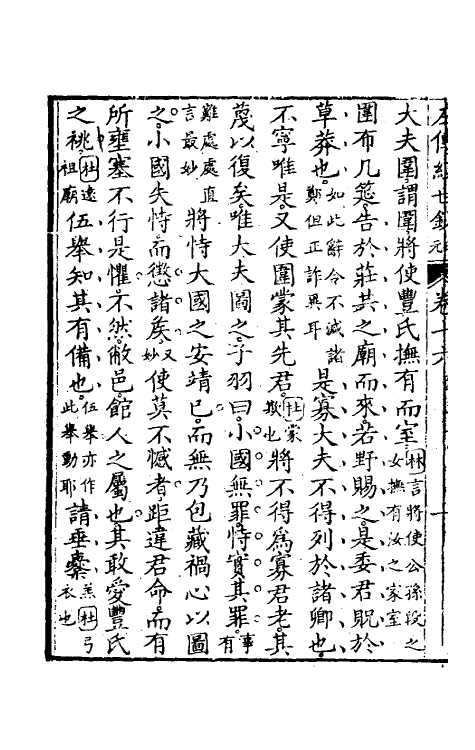 左傳經世鈔 卷十六
大夫圍謂圍將使豐氏撫有而室林言將使公孫段之女撫有汝之家室
圍布几筵告於莊共之廟而來若野賜之是委君貺於
草莽也如此辭令不減諸鄭但正詐異耳是寡大夫不得列於諸卿也
不寧唯是又使圍蒙其先君杜蒙欺也將不得爲寡君老其
蔑以復矣唯大夫圖之子羽曰小國無罪恃實其罪事有
難處處直言最妙將恃大國之安靖已而無乃包藏禍心以圖
之小國失恃而懲諸矦又妙使莫不憾者距違君命而有
所壅塞不行是懼不然敝邑館人之屬也其敢愛豐氏
之祧杜遠祖廟伍舉知其有備也伍舉亦作此舉動耶請垂櫜羔杜弓衣也